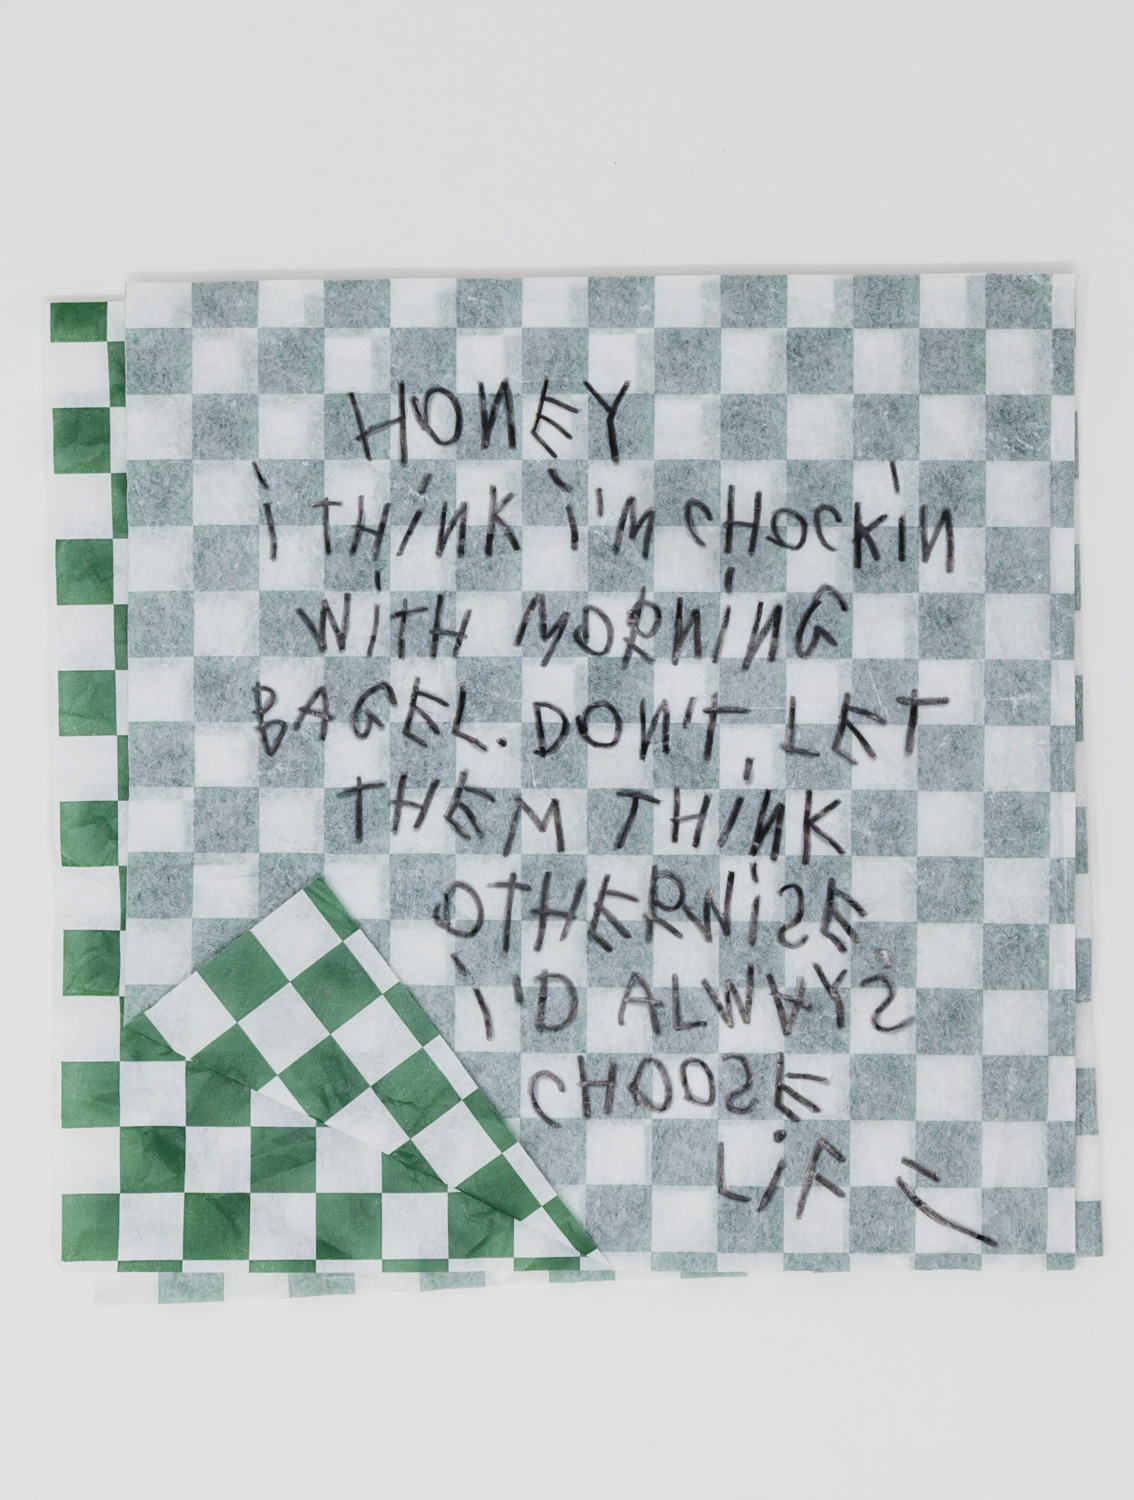 HONEY
i THiNK i'M CHOCKiN
WiTH MORNiNG
BAGEL. DON'T LET
THEM THiNK
OTHERWiSE
i'D ALWAYS
CHOOSE
LiF